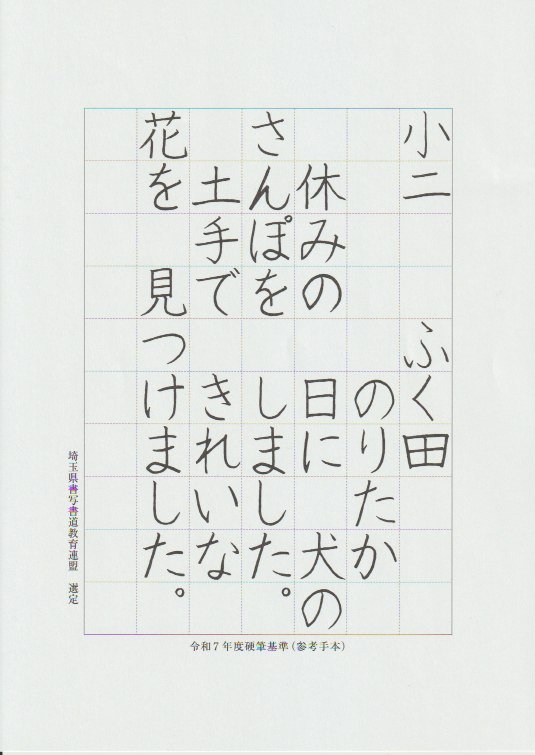 小二　ふく田
のりたか
休みの　日に　犬の
さんぽを　しました。
土手で　きれいな
花を　見つけました。
埼玉県書写書道教育連盟　選定
令和7年度硬筆基準（参考手本）